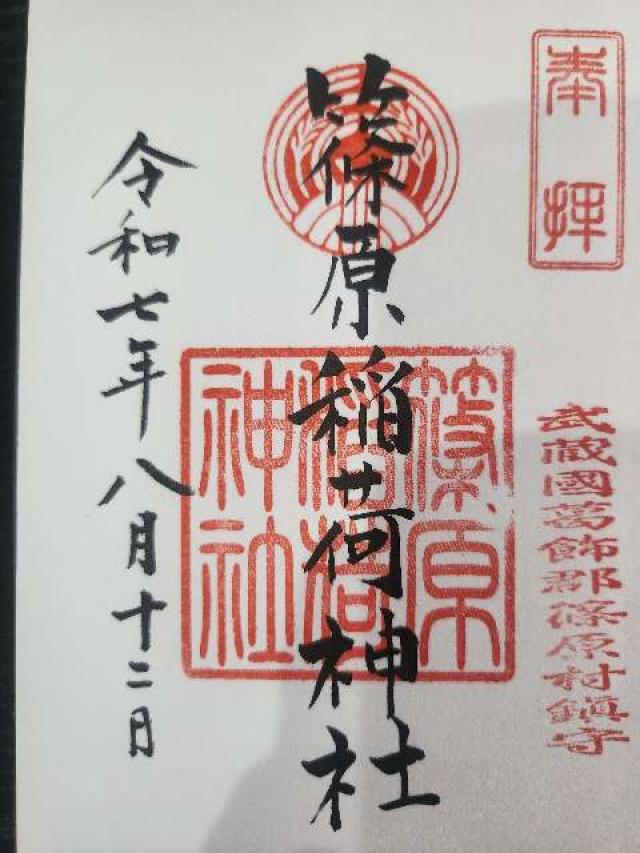 奉拝
武蔵國葛飾郡篠原村鎮守
篠原稲荷神社
篠原稲荷神社
令和七年八月十二日